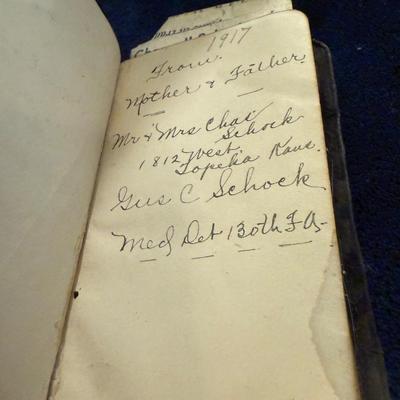 1917
From
Mother & Father.
Mr & Mrs Chas
Schock
1812 West.
Topeka Kans.
Gus C Schock
Med Det 130th F A